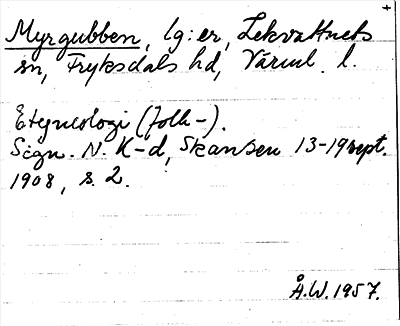 +
Myrgubben, lg:er, Lekvattnets
sn, Fryksdals hd, Värml. l.
Etymologi (folk-).
Sign. N. K-d, Skansen 13-19 sept.
1908, s. 2.
Å.W. 1957.